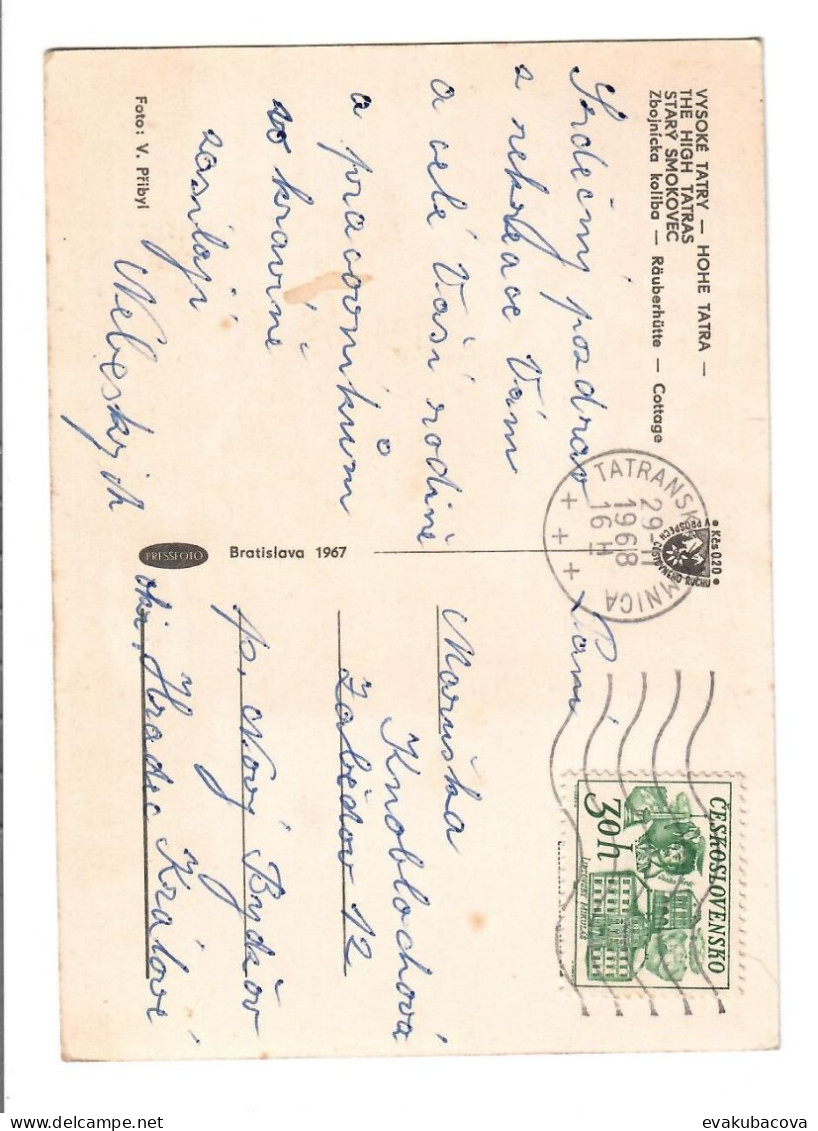 VYSOKÉ TATRY — HOHE TATRA —
THE HIGH TATRAS
STARÝ SMOKOVEC
Zbojnícka koliba — Räuberhütte — Cottage
Srdečný pozdrav
z rekreace Vám
a celé Vaší rodině
a pracovníkům
vo kravíně
zasílají
Nebeských
Foto: V. Přibyl
PRESSFOTO
Bratislava 1967
Kčs 0,20
V PROSPECH
TATRANSKÁ LOMNICA
29.-
1968
16 H
+ + +
ČESKOSLOVENSKO
30h
LIPTOVSKÝ MIKULÁŠ
Paní
Maruška
Knoblochová
Zábědov 12
p. Nový Bydžov
okr. Hradec Králové
evakubacova